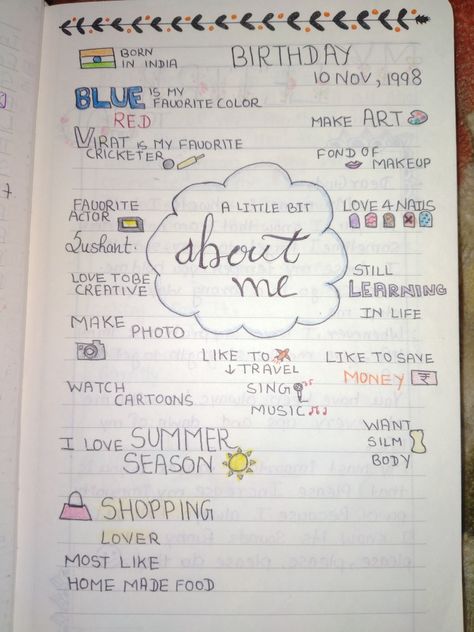 BORN
IN INDIA
BIRTHDAY
10 NOV, 1998
BLUE IS MY
FAVORITE COLOR
RED
MAKE ART
VIRAT IS MY FAVORITE
CRICKETER
FOND OF
MAKEUP
A LITTLE BIT
about
me
FAVORITE
ACTOR
Sushant.
LOVE 4 NAILS
LOVE TO BE
CREATIVE
STILL
LEARNING
IN LIFE
MAKE PHOTO
LIKE TO
↓ TRAVEL
LIKE TO SAVE
MONEY ₹
WATCH
CARTOONS
SING
MUSIC
WANT
SILM
BODY
I LOVE SUMMER
SEASON
SHOPPING
LOVER
MOST LIKE
HOME MADE FOOD